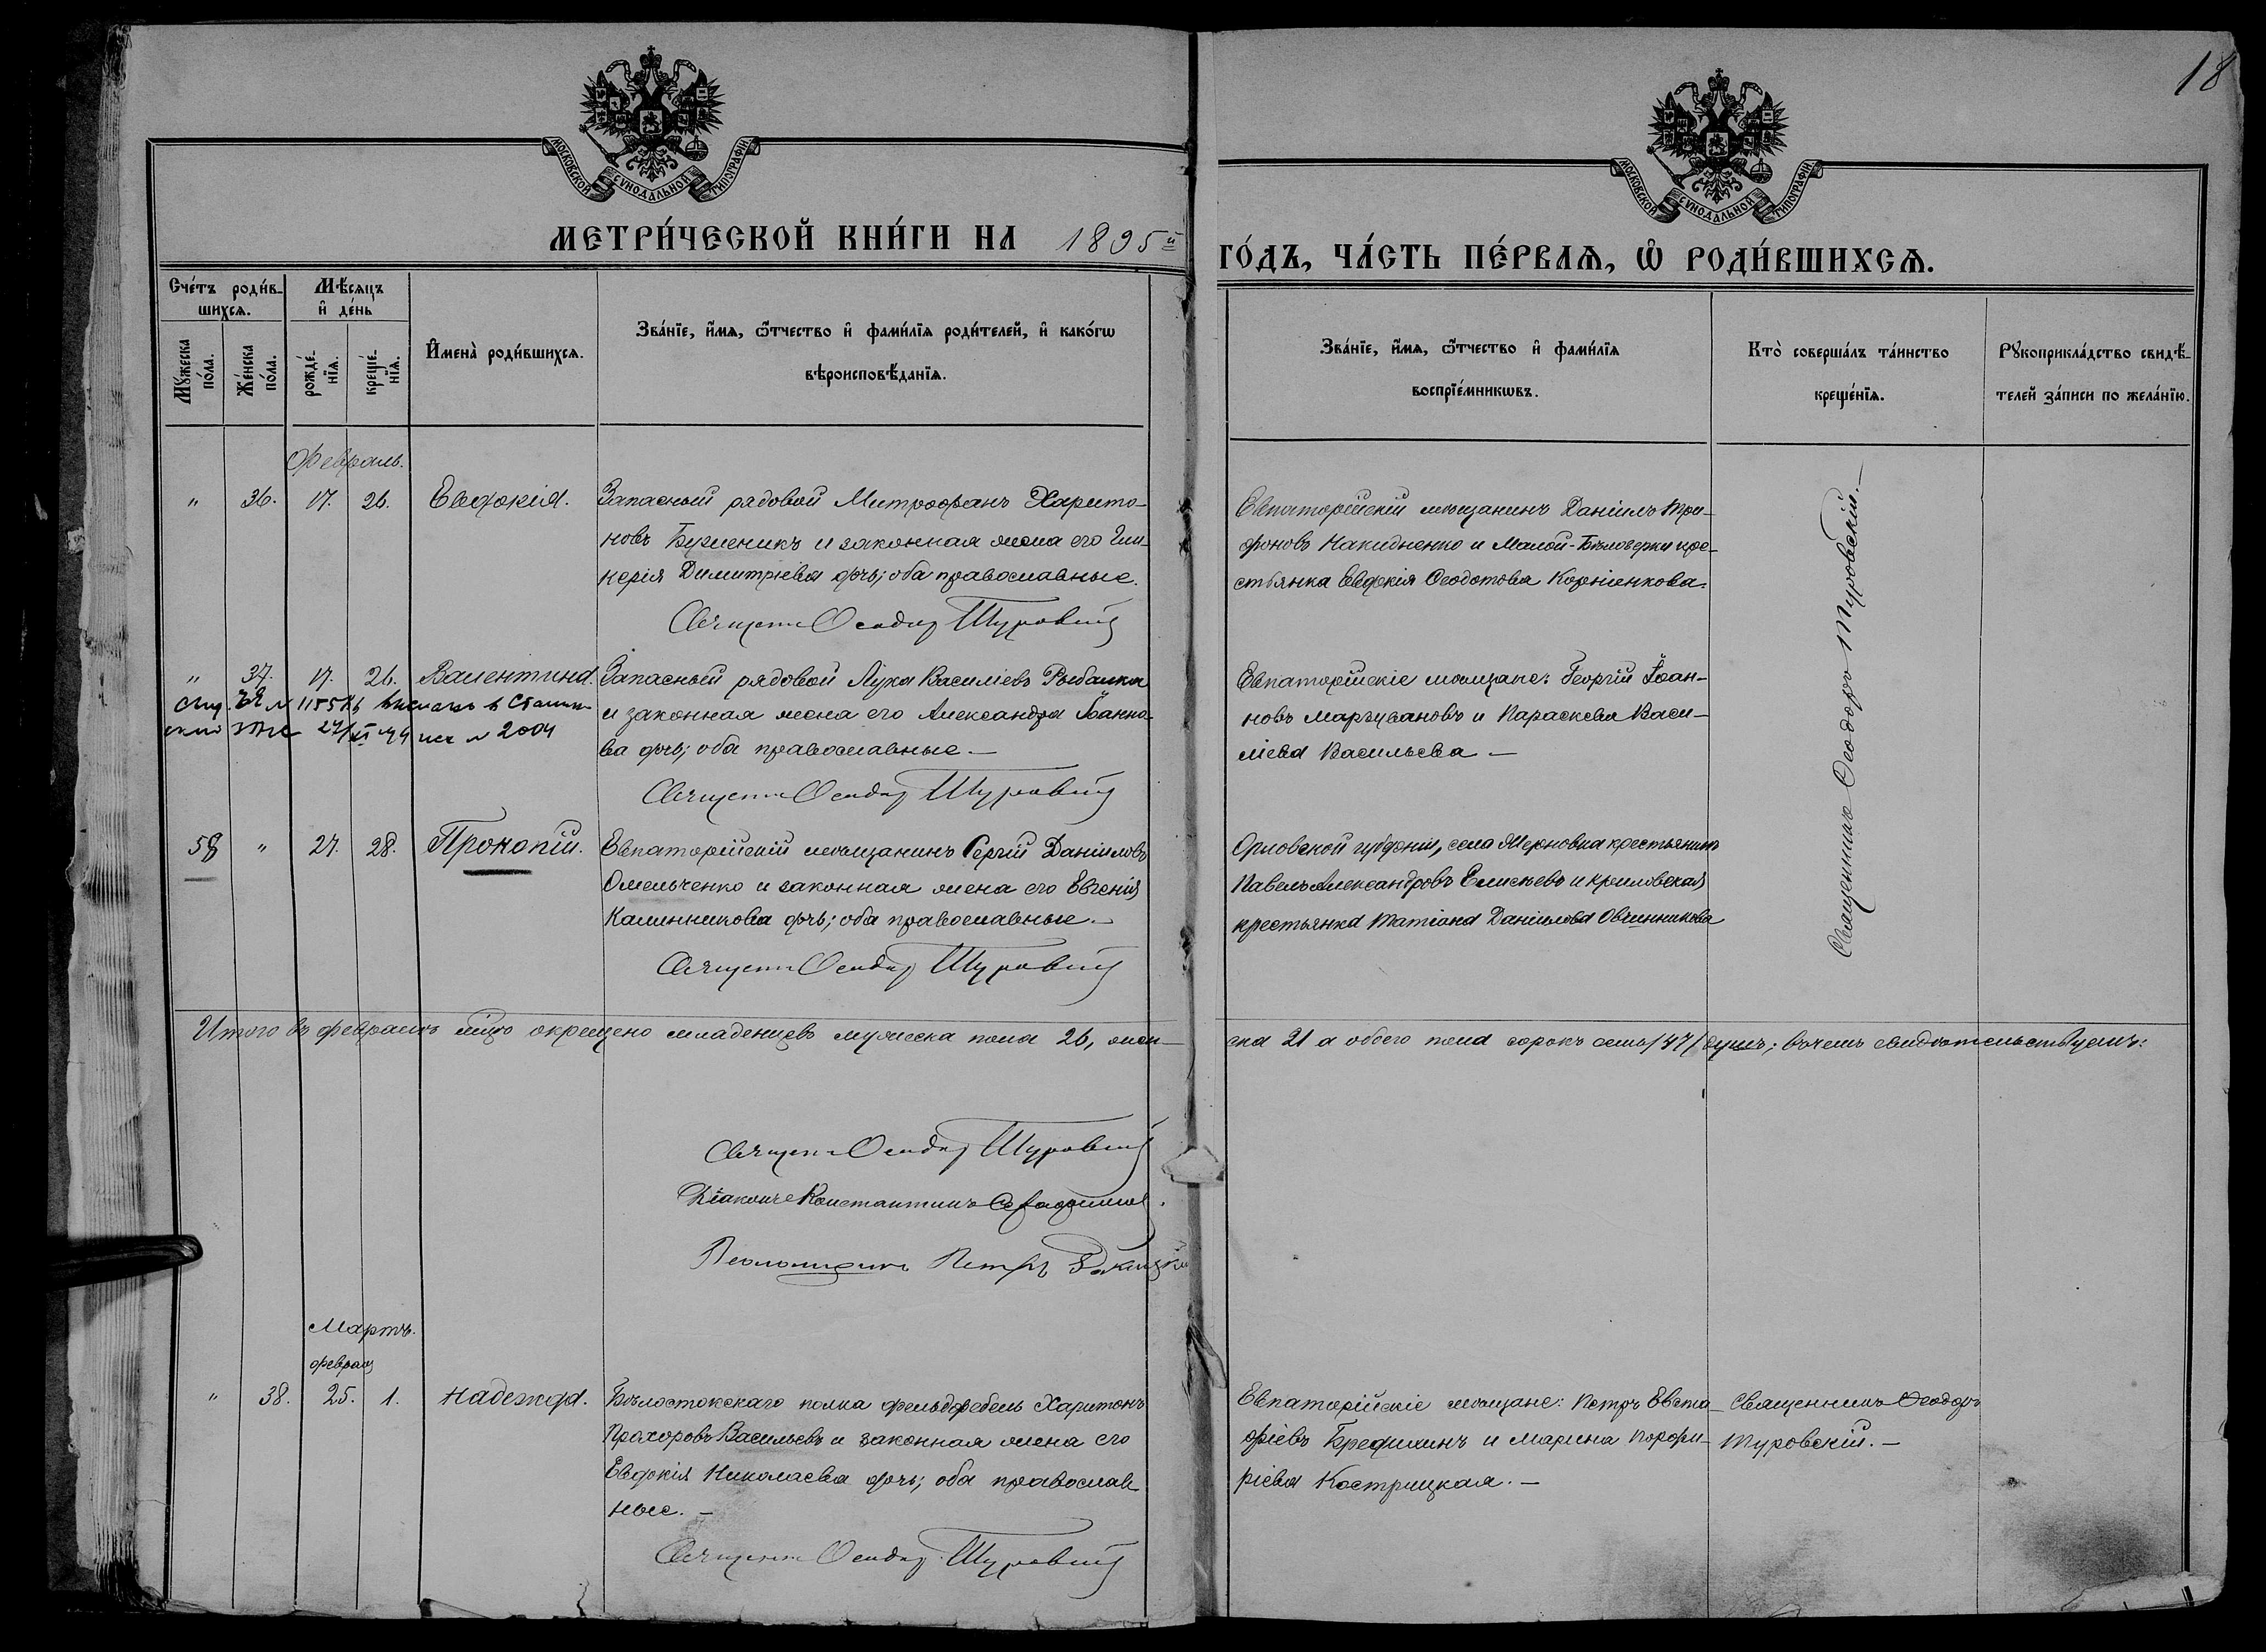 18
МОСКОВСКОЙ СѴНОДАЛЬНОЙ ТИПОГРАФІИ
МОСКОВСКОЙ СѴНОДАЛЬНОЙ ТИПОГРАФІИ
МЕТРИ́ЧЕСКОЙ КНИ́ГИ НА 1895й
ГО́ДЪ, ЧА́СТЬ ПЕ́РВАѦ, Ѡ҆ РОДИ́ВШИХСѦ.
Сче́тъ роди́в-
шихсѧ.
Мꙋ́жеска по́ла.
Же́нска по́ла.
Мѣ́сѧцъ
и҆ де́нь
рожде́-нїѧ.
креще́-нїѧ.
И҆мена̀ роди́вшихсѧ.
Зва́нїе, и҆́мѧ, ѻ҆́тчество и҆ фами́лїѧ роди́телей, и҆ како́гѡ
вѣроисповѣ́данїѧ.
Зва́нїе, и҆́мѧ, ѻ҆́тчество и҆ фами́лїѧ
воспрїе́мникѡвъ.
Кто̀ соверша́лъ та́инство
креще́нїѧ.
Рꙋкоприкла́дство свидѣ́-
телей за́писи по жела́нїю.
Февраль.
" 36. 17. 26. Евдокія. Запасный рядовой Митрофанъ Харито-
новъ и законная жена его Гли-
керія Димитріева дочь; оба православные.
Священ. Ѳеодор Туровскій
Евпаторійскій мѣщанинъ Даніилъ Три-
фоновъ Накидненко и Малой-Бѣлозерки кре-
стьянка Евдокія Ѳеодотова Корніенкова.
Священникъ Ѳеодоръ Туровскій.—
" 37. 17. 26. Валентина. Запасный рядовой Лука Василіевъ Рыбалка
и законная жена его Александра Іоанно-
ва дочь; оба православные.—
Священ. Ѳеодор Туровскій
27/XI 49 исх № 2004
Евпаторійскіе мѣщане: Георгій Іоан-
новъ Маргушановъ и Параскева Васи-
ліева Васильева —
58 " 27. 28. Прокопій. Евпаторійскій мѣщанинъ Сергій Даніиловъ
Омельченко и законная жена его Евгенія
Калинникова дочь; оба православные.—
Священ. Ѳеодор Туровскій
Орловской губерніи, села крестьянинъ
Павелъ Александровъ Елисѣевъ и
крестьянка Татіана Даніилова Овчинникова
Итого въ февралѣ мцѣ окрещено младенцевъ мужеска пола 26, жен-
ска 21 а обоего пола сорокъ семь /47/ душъ; въ чемъ свидѣтельствуемъ:
Священ. Ѳеодор Туровскій
Діаконъ Константинъ Серафимов.
Псаломщикъ Петръ
Мартъ.
февраля
" 38. 25. 1. Надежда. Бѣлостокскаго полка фельдфебель Харитонъ
Прохоровъ Васильевъ и законная жена его
Евдокія Николаева дочь; оба православ-
ные.—
Священ. Ѳеодор Туровскій
Евпаторійскіе мѣщане: Петръ Евста-
фіевъ Бредихинъ и Марина Порфи-
ріева Кострицкая.—
Священникъ Ѳеодоръ
Туровскій.—